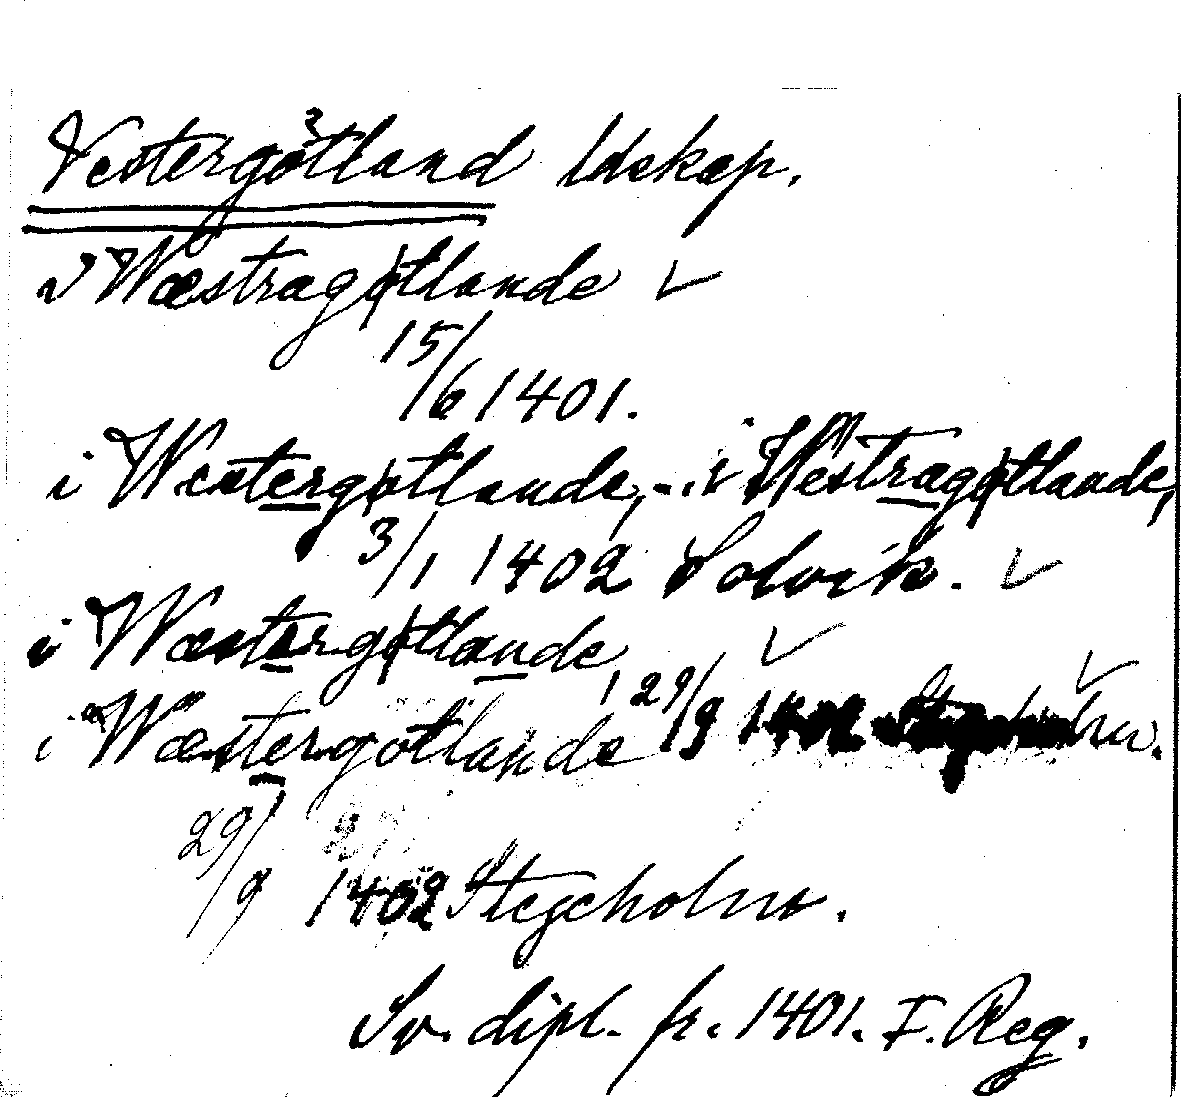 Vestergötland ldskap.
i Wæstragøtlande ✓
15/6 1401.
i Westergøtlande, - i Westragøtlande,
3/1 1402 Solvik. ✓
i Wæstergøtlande, ✓
i Wæstergötlande 29/9 1402 Stegeholm. ✓
29/9 1402 Stegeholm.
Sv. dipl. fr. 1401. I. Reg.